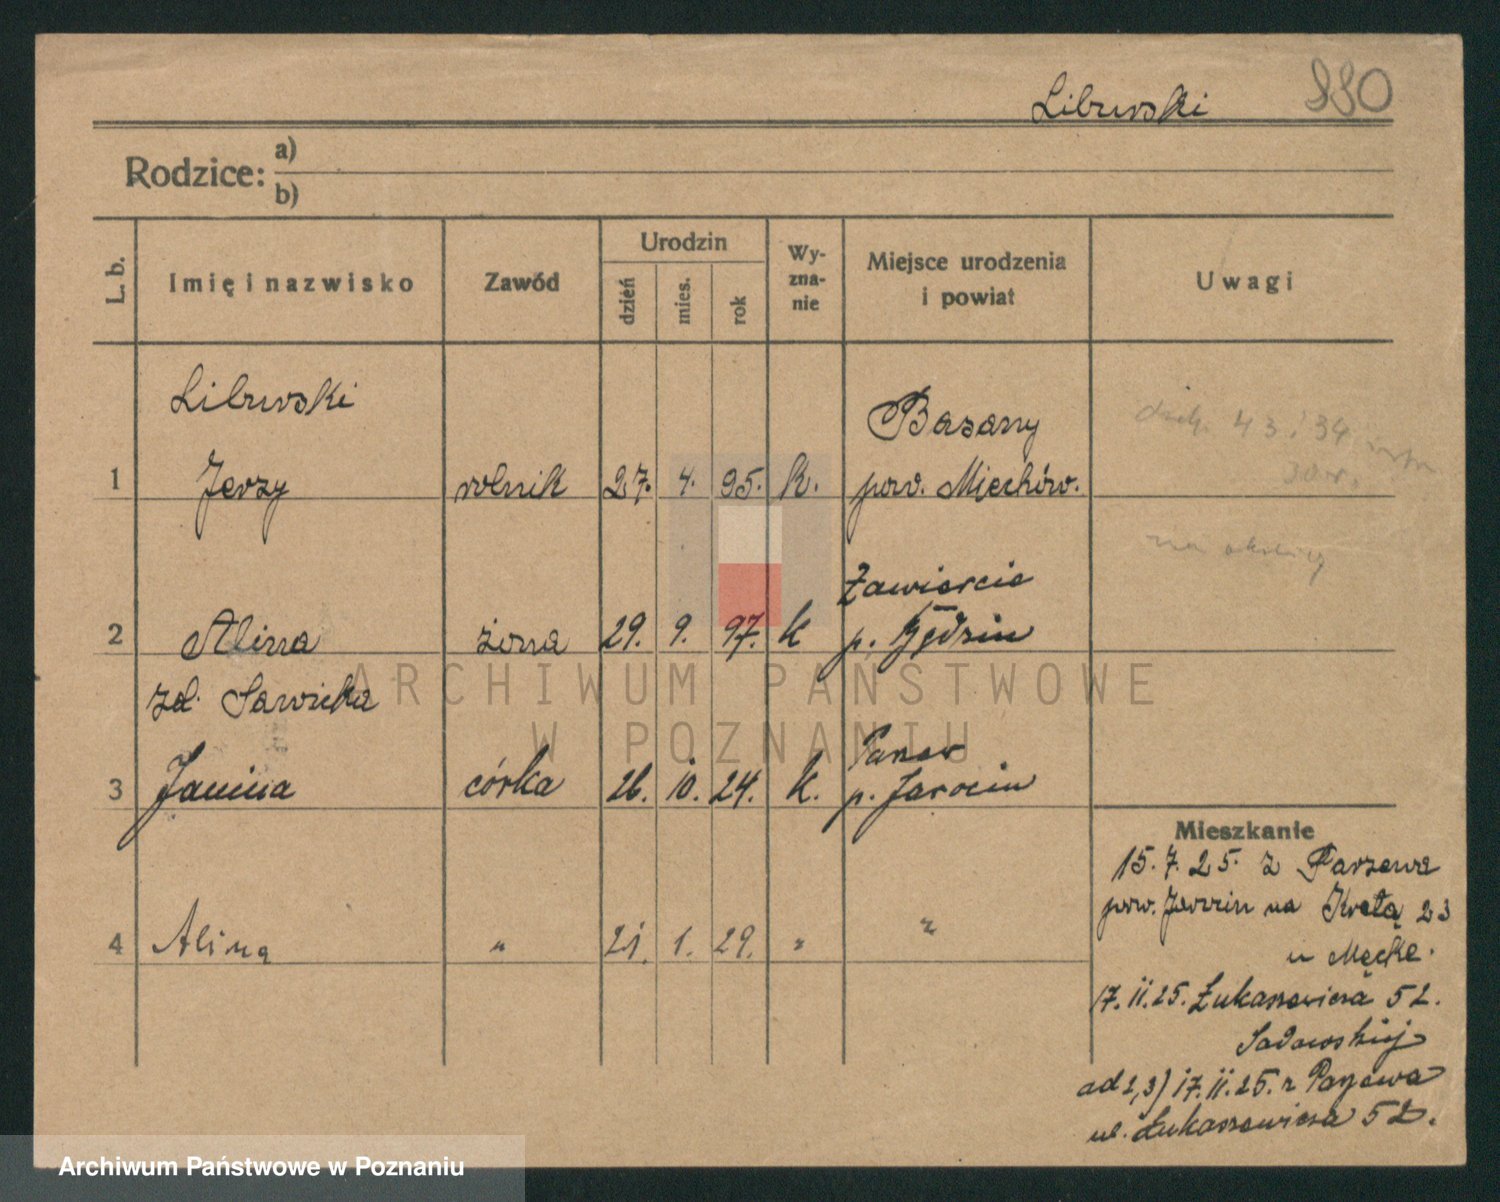 Liburski 880
Rodzice: a)
b)
L. b. Imię i nazwisko Zawód Urodzin dzień mies. rok Wyznanie Miejsce urodzenia i powiat Uwagi
Liburski
Bazany
1 Jerzy rolnik 27. 4. 95. k. pow. Miechów.
43 i 34
Zawiercie
2 Alina żona 29. 9. 97. k p. Będzin
zd. Sawicka
3 Janina córka 26. 10. 24. k. p. Jarocin
4 Alina " 21. 1. 29. " "
Mieszkanie
15. 7. 25. z Parzewa
pow. Jarocin na 23
u Męcke.
17. 11. 25. Łukaszewicza 52.
Sadowskiej
ad 2, 3) 17. 11. 25. z Parzewa
ul. Łukaszewicza 52.
ARCHIWUM PAŃSTWOWE
W POZNANIU
Archiwum Państwowe w Poznaniu